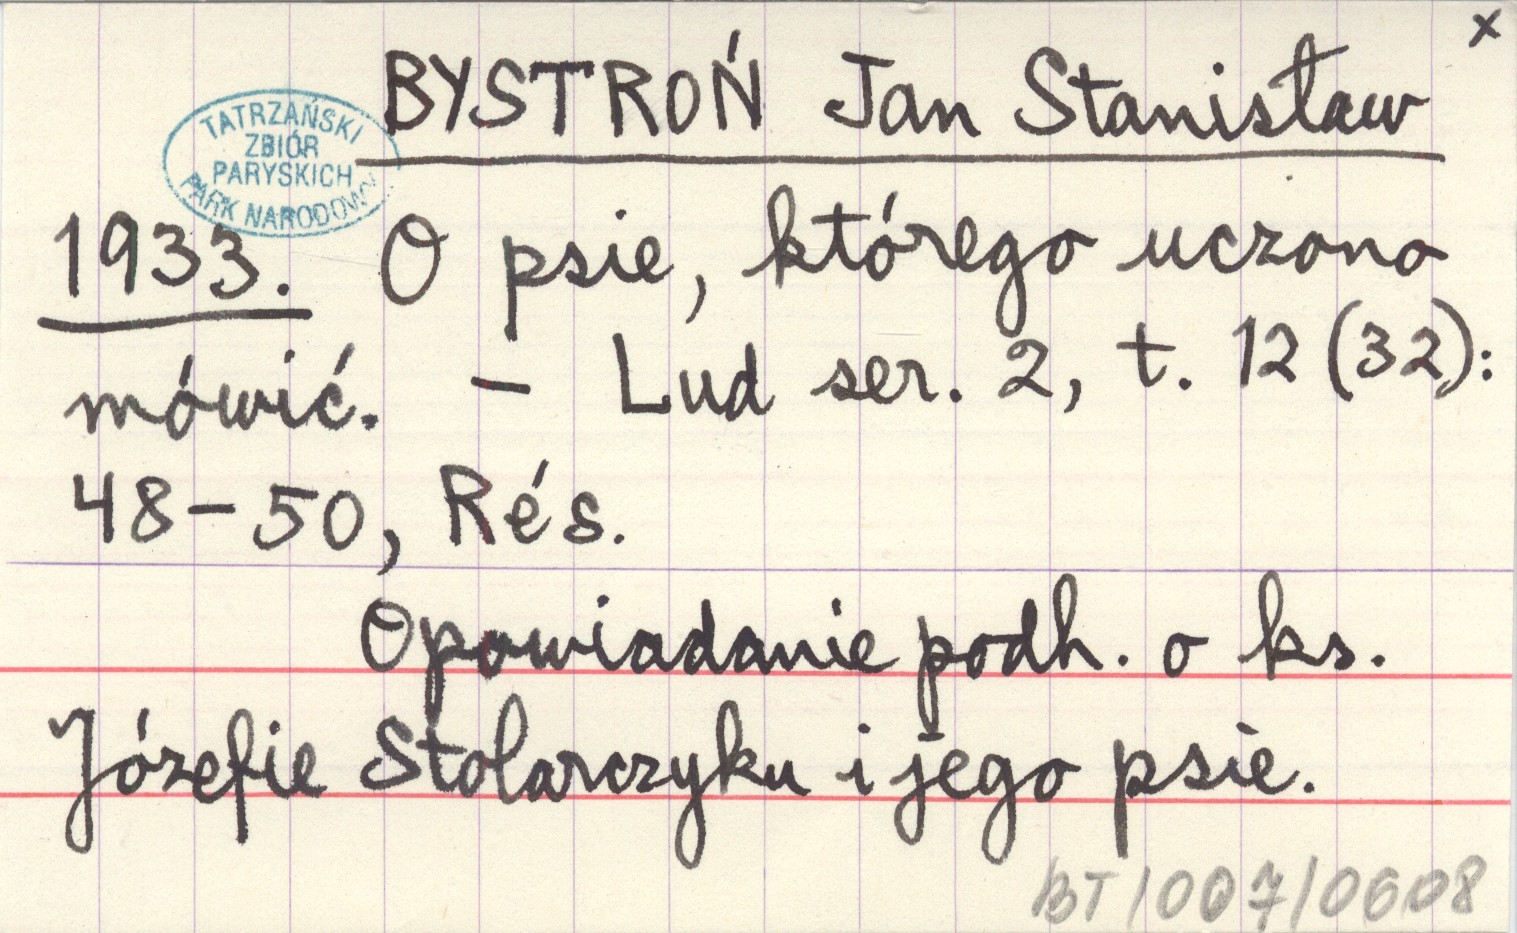 x
BYSTROŃ Jan Stanisław
TATRZAŃSKI
ZBIÓR
PARYSKICH
PARK NARODOWY
1933. O psie, którego uczono
mówić. – Lud ser. 2, t. 12 (32):
48–50, Rés.
Opowiadanie podh. o ks.
Józefie Stolarczyku i jego psie.
BT/007/0608